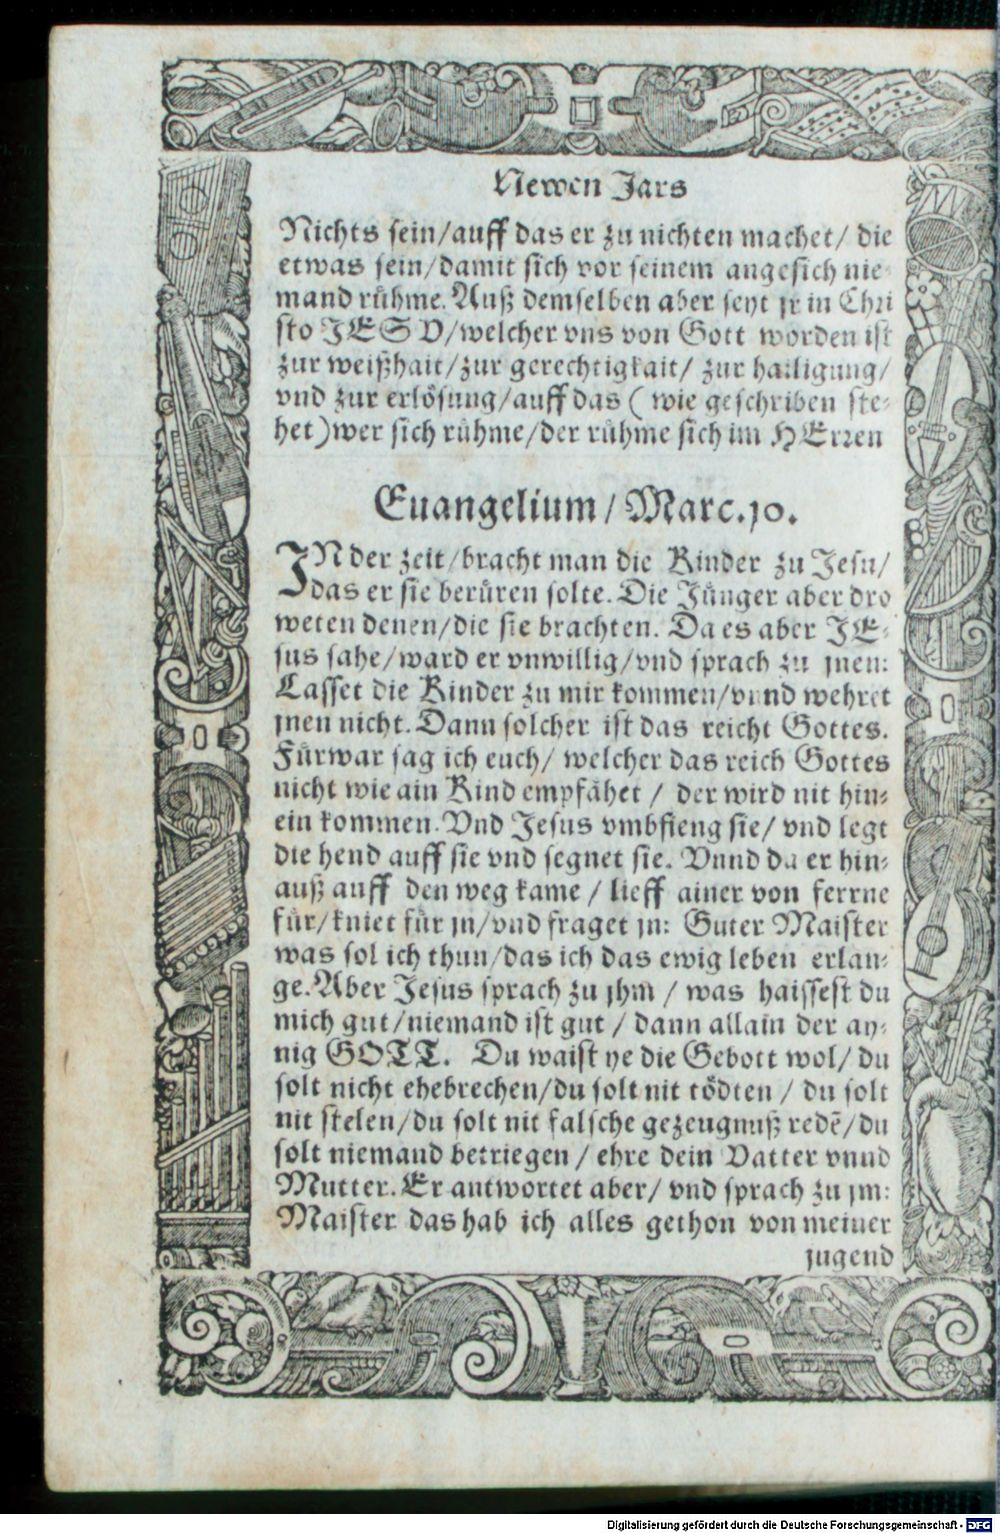 Newen Jars
Nichts sein/auff das er zu nichten machet/ die
etwas sein/damit sich vor seinem angesich nie⸗
mand rühme. Auß demselben aber seyt jr in Chri
sto JESV/welcher vns von Gott worden ist
zur weißhait/zur gerechtigkait/ zur hailigung/
vnd zur erlösung/auff das ( wie geschriben ste⸗
het)wer sich rühme/der rühme sich im HErren
Euangelium / Marc.10.
JN der zeit/bracht man die Kinder zu Jesu/
das er sie berüren solte. Die Jünger aber dro
weten denen/die sie brachten. Da es aber JE⸗
sus sahe/ward er vnwillig/vnd sprach zu jnen:
Lasset die Kinder zu mir kommen/vnnd wehret
jnen nicht. Dann solcher ist das reicht Gottes.
Fürwar sag ich euch/ welcher das reich Gottes
nicht wie ain Kind empfähet / der wird nit hin⸗
ein kommen. Vnd Jesus vmbfieng sie/ vnd legt
die hend auff sie vnd segnet sie. Vnnd da er hin⸗
auß auff den weg kame / lieff ainer von ferrne
für/kniet für jn/vnd fraget jn: Guter Maister
was sol ich thun/das ich das ewig leben erlan⸗
ge. Aber Jesus sprach zu jhm / was haissest du
mich gut/niemand ist gut / dann allain der ay⸗
nig GOTT. Du waist ye die Gebott wol/ du
solt nicht ehebrechen/du solt nit tödten / du solt
nit stelen/du solt nit falsche gezeugnuß redẽ/du
solt niemand betriegen / ehre dein Vatter vnnd
Mutter. Er antwortet aber/ vnd sprach zu jm:
Maister das hab ich alles gethon von meiner
jugend
Digitalisierung gefördert durch die Deutsche Forschungsgemeinschaft - DFG